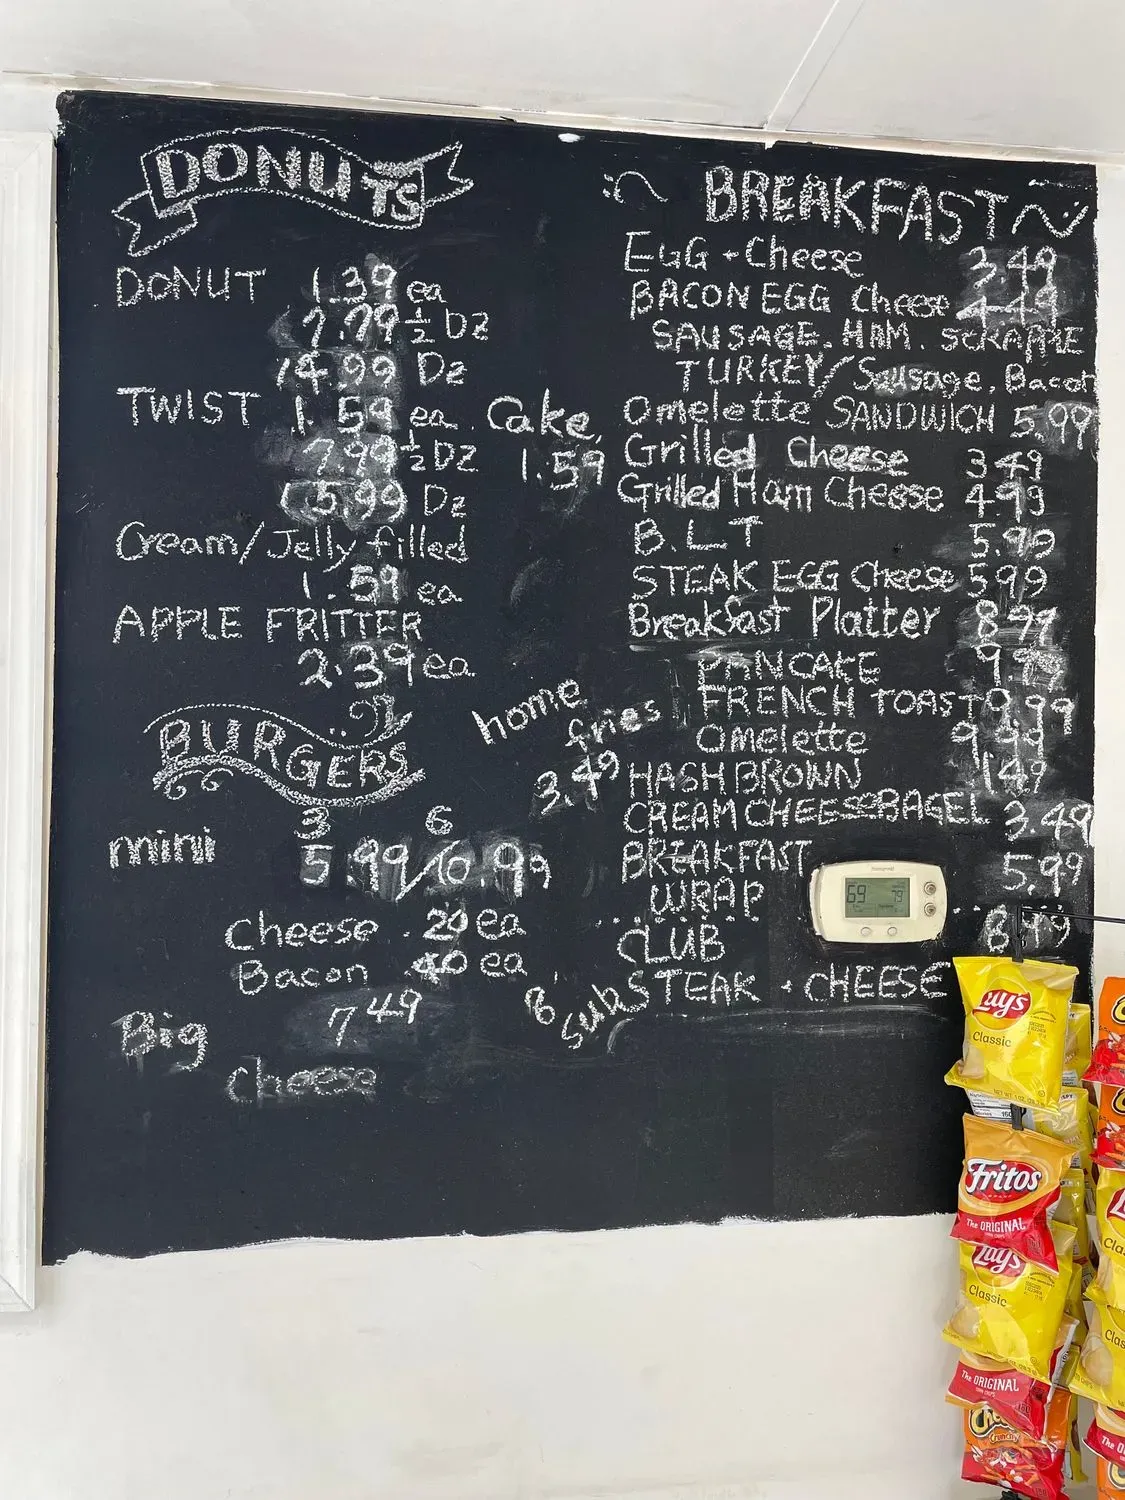 DONUTS
DONUT 1.39 ea
7.79 ½ Dz
14.99 Dz
TWIST 1.59 ea.
7.99 ½ DZ
15.99 Dz
Cake,
1.59
Cream/Jelly filled
1.59 ea
APPLE FRITTER
2.39 ea.
BURGERS
3 6
mini 5.99/10.99
Cheese .20 ea
Bacon .40 ea
Big 7.49
Cheese
home
fries
3.49
BREAKFAST
EGG + Cheese 3.49
BACON EGG Cheese 4.49
SAUSAGE. HAM. SCRAPPLE
TURKEY/Sausage, Bacon
Omelette SANDWICH 5.99
Grilled Cheese 3.49
Grilled Ham Cheese 4.99
B.L.T 5.99
STEAK EGG Cheese 5.99
Breakfast Platter 8.99
PANCAKE
FRENCH TOAST 9.99
Omelette 9.99
HASHBROWN 1.49
CREAM CHEESE BAGEL 3.49
BREAKFAST
WRAP 5.99
CLUB 8.49
8" Sub STEAK + CHEESE
Honeywell
69 79
Lay's
Classic
Fritos
The ORIGINAL
Lay's
Classic
The ORIGINAL
Crunchy